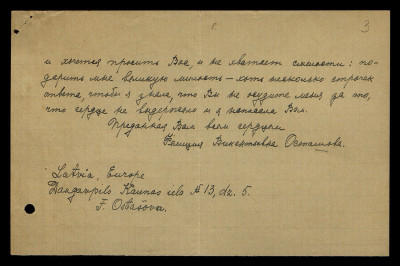 3
и хочется просить Вас, и не хватает смелости: по-
дарить мне великую милость — хоть несколько строчек
ответа, чтобы я знала, что Вы не осудите меня за то,
что сердце не выдержало и я написала Вам.
Преданная Вам всем сердцем
Фаиция Викентьевна Осташова.
Latvia, Europe
Daugavpils Kaunas iela № 13, dz. 5.
F. Ostašova.